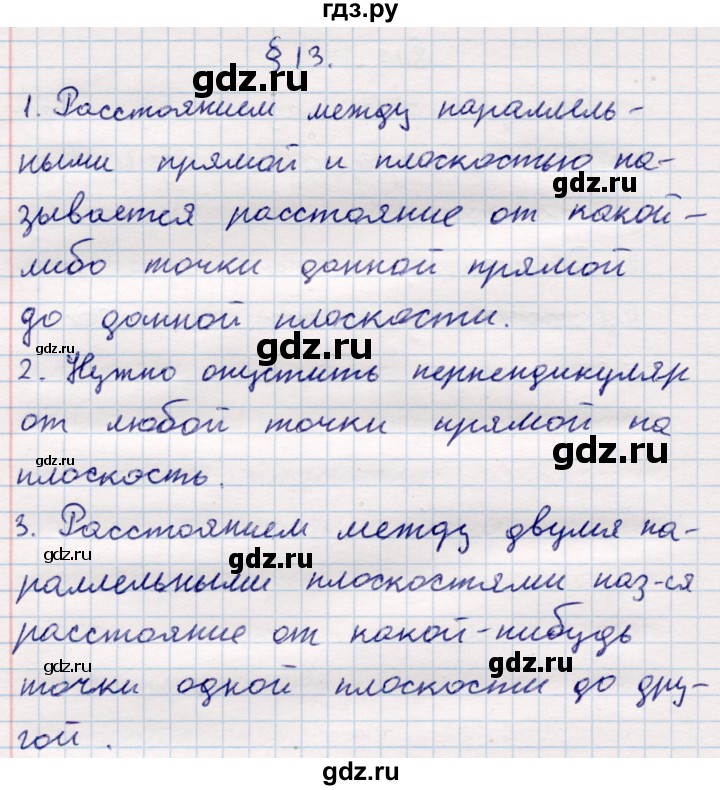 гдз.ру
§ 13.
gdz.ru
1. Расстоянием между параллель-
ными прямой и плоскостью на-
gdz.ru
зывается расстояние от какой-
либо точки данной прямой
gdz.ru
до данной плоскости.
gdz.ru
gdz.ru
2. Нужно опустить перпендикуляр
от любой точки прямой на
gdz.ru
gdz.ru
плоскость.
3. Расстоянием между двумя па-
gdz.ru
gdz.ru
раллельными плоскостями наз-ся
расстояние от какой-нибудь
gdz.ru
точки одной плоскости до дру-
gdz.ru
гой.
gdz.ru